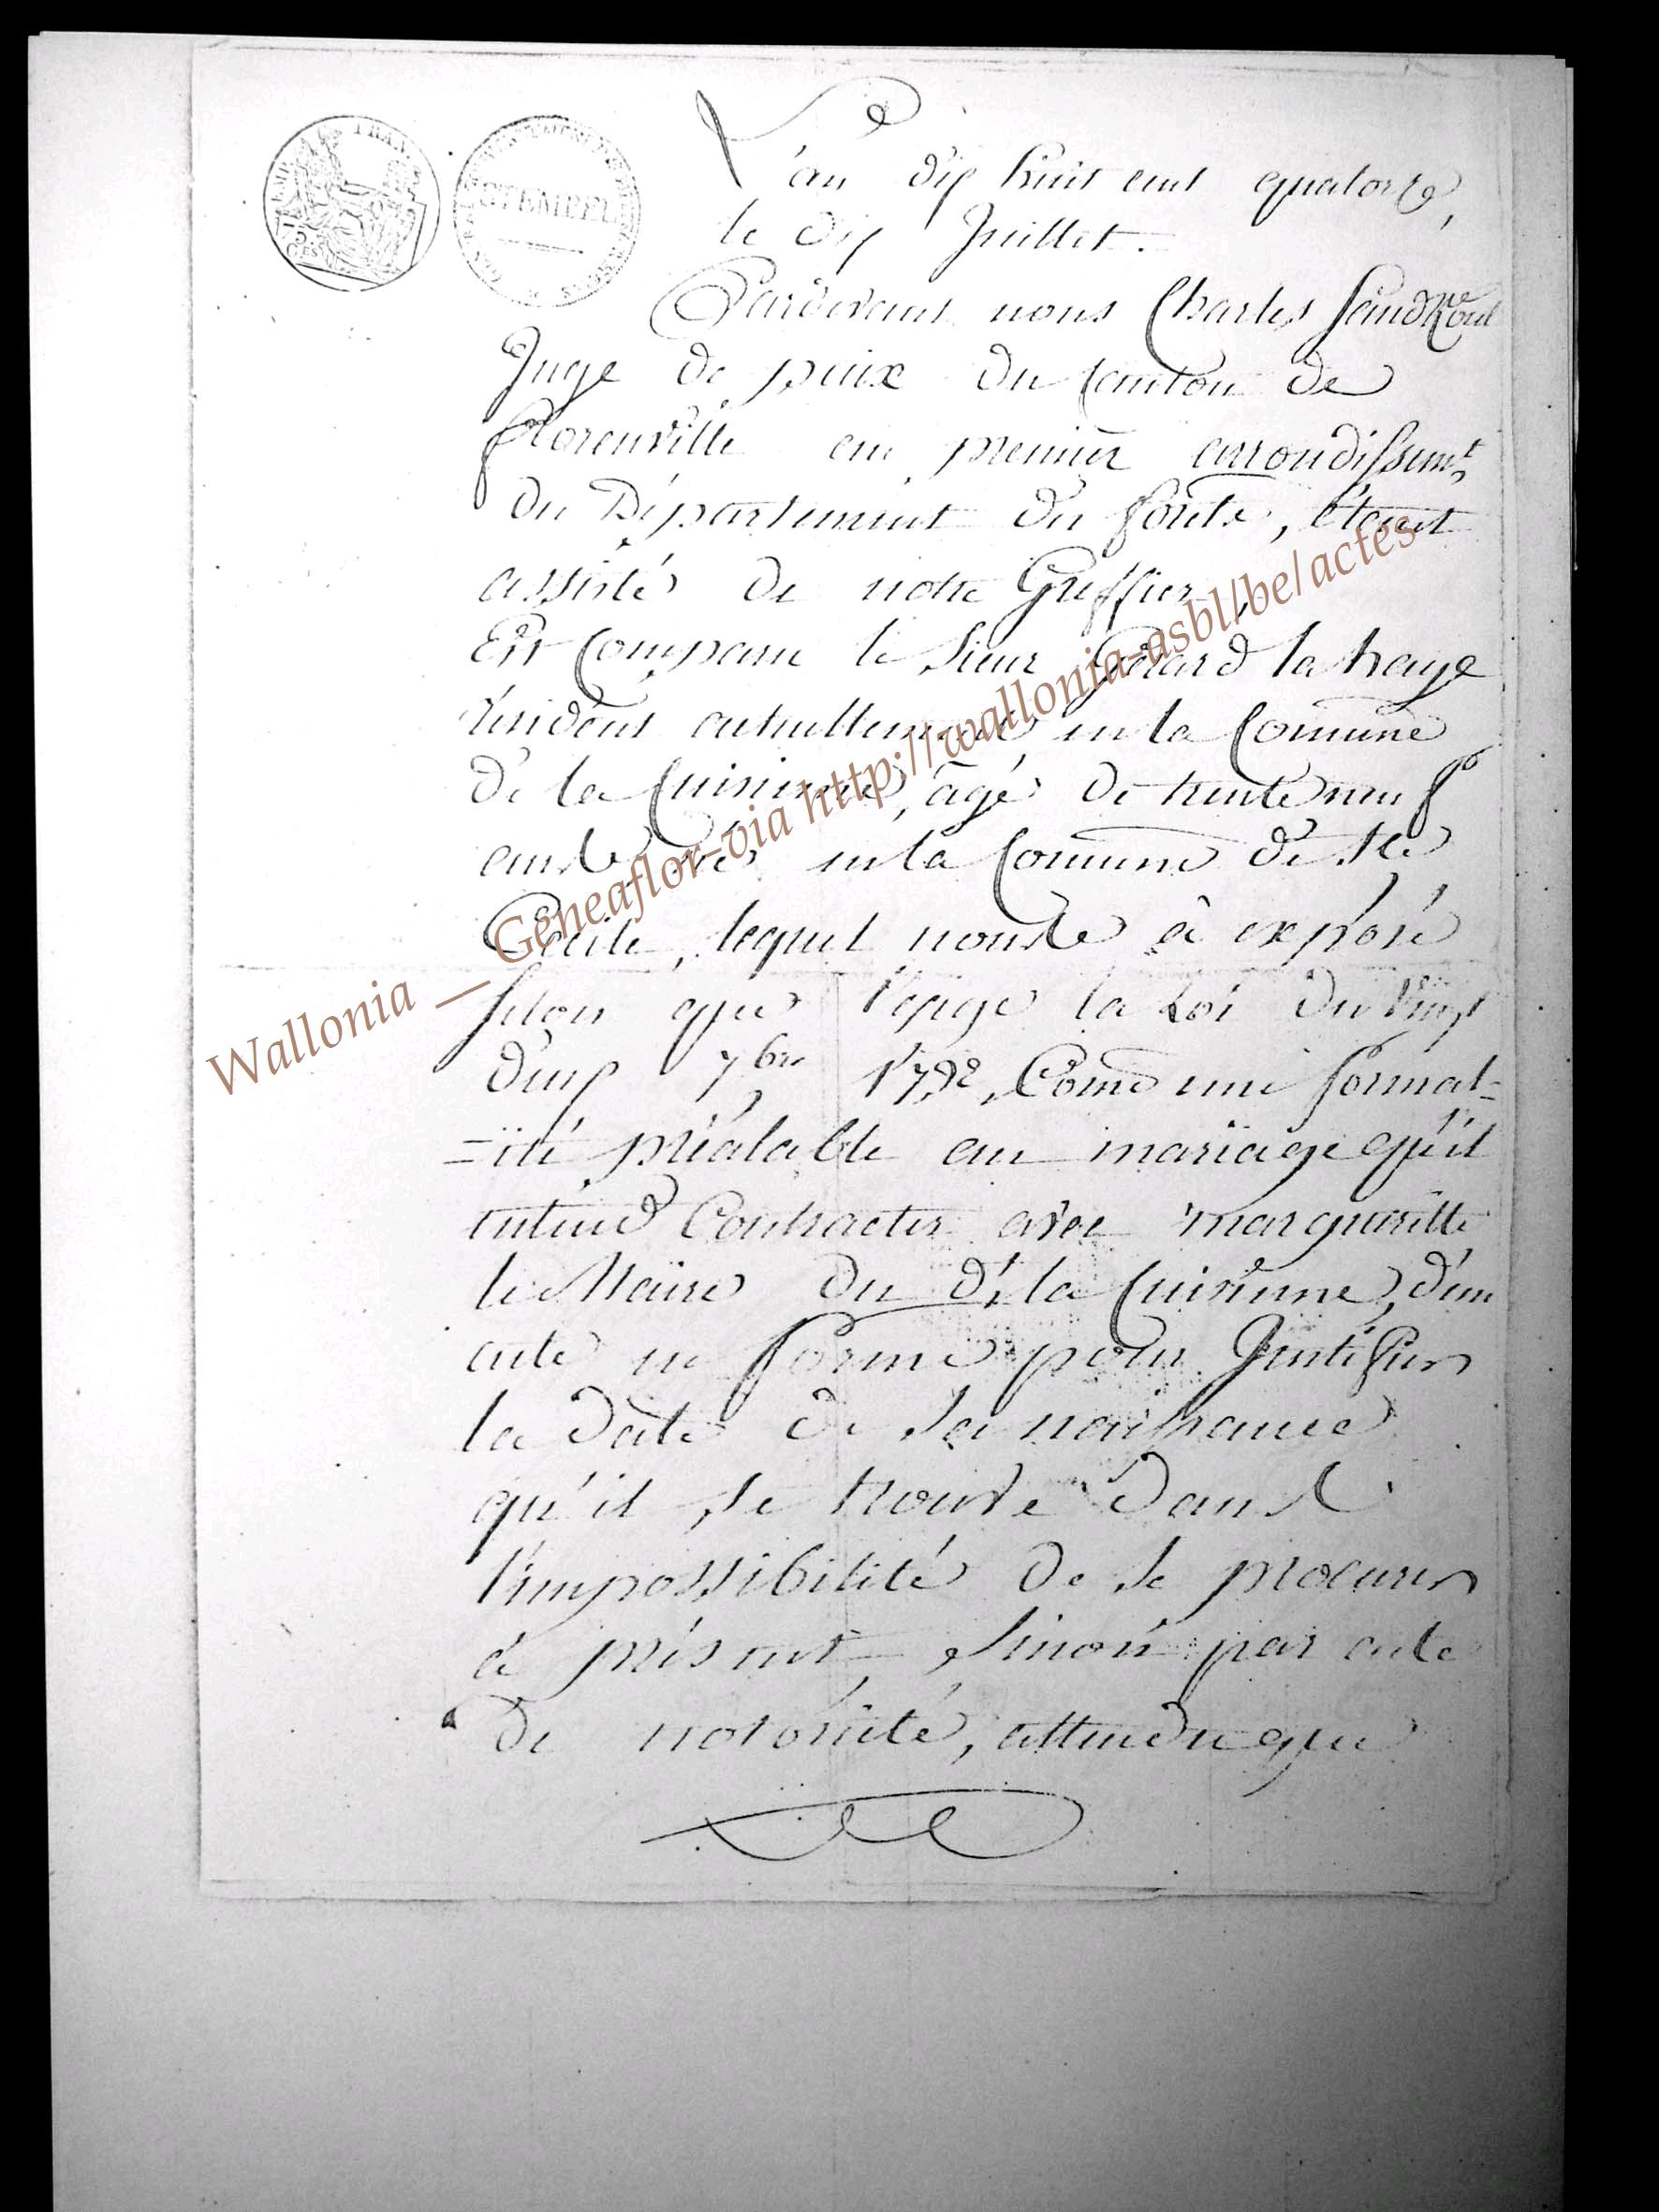 STEMPEL
L'an dix huit cent quatorze,
le dix Juillet.
Pardevant nous Charles
Juge de paix du Canton de
florenville en premier arrondissemt
du Département du forêts, étant
assisté de notre Greffier,
Est Comparu le Sieur Gérard la haye
résident actuellement en la Comune
de la Cuisinne, âgé de trente neuf
ans né en la Comune de Ste
Cécile, lequel nous a exposé
selon que l'exige la Loi du vingt
deux 7bre 1792, Come une formal-
=ité préalable au mariage qu'il
entend Contracter avec margueritte
le Maire du d. la Cuisinne, d'un
acte en forme pour Justifier
la date de sa naissance
qu'il se trouve dans
l'impossibilité de se procurer
à présent, sinon par acte
de notoriété, attendu que
Wallonia _ Généaflor-via http://wallonia-asbl/be/actes